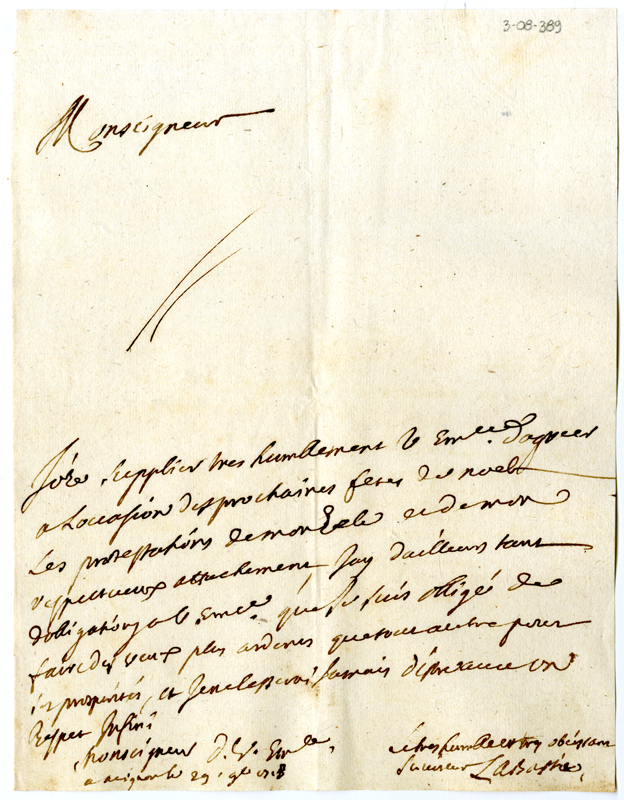 3-08-389
Monseigneur
J'oze supplier tres humblement V. Em.ce d'agreer
a l'occasion des prochaines fetes de noel
Les protestations de mon Zele et de mon
respectueux attachement, J'ay d'ailleurs tant
d'obligations a V. Em.ce que Je suis obligé de
faire des vœux plus ardents que tout autre pour
prosperités, et Je ne lesseray Jamais d'etre avec un
Respect Infini
Monseigneur D. V. Em.ce
a avignon le 29
Le tres humble et tres obeissant
Serviteur LaBastie